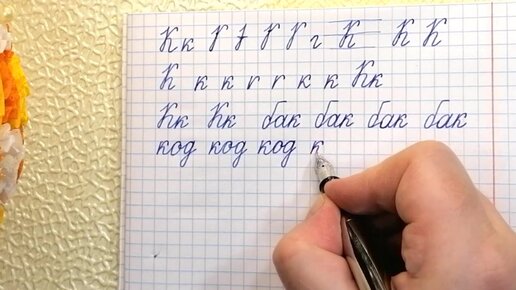 Кк К К К К К
К к к г г к к Кк
Кк Кк бак бак бак бак
код код код к